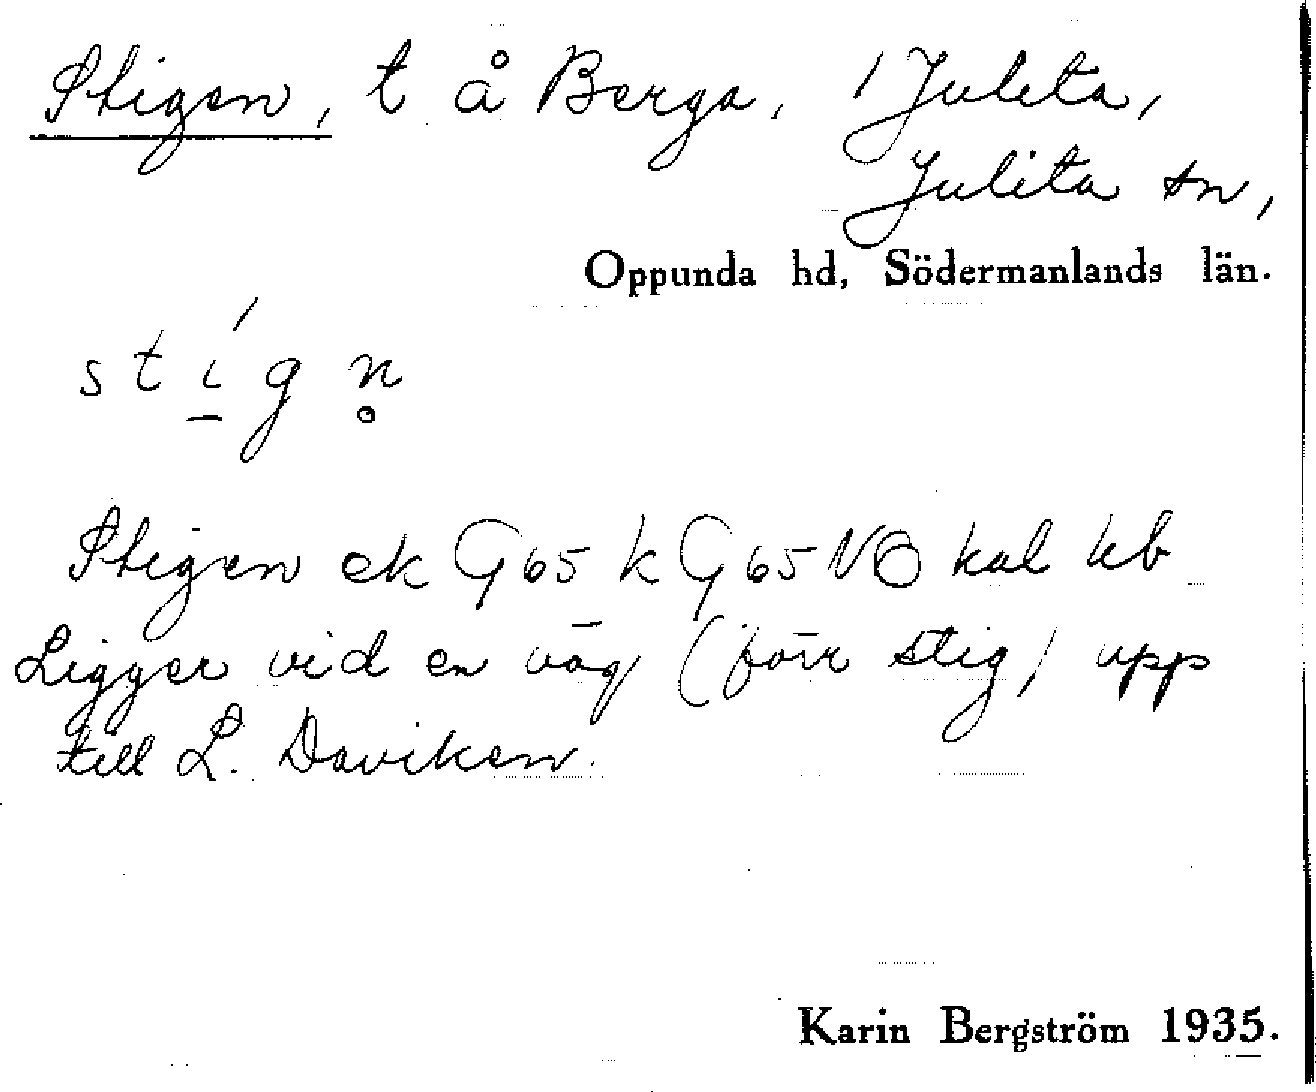 Stigen, t å Berga, 1 Julita,
Julita sn,
Oppunda hd, Södermanlands län.
sti̱´gn̥
Stigen ek G65 k G65 NB kal kb
Ligger vid en väg (förr stig) upp
till L. Daviken.
Karin Bergström 1935.